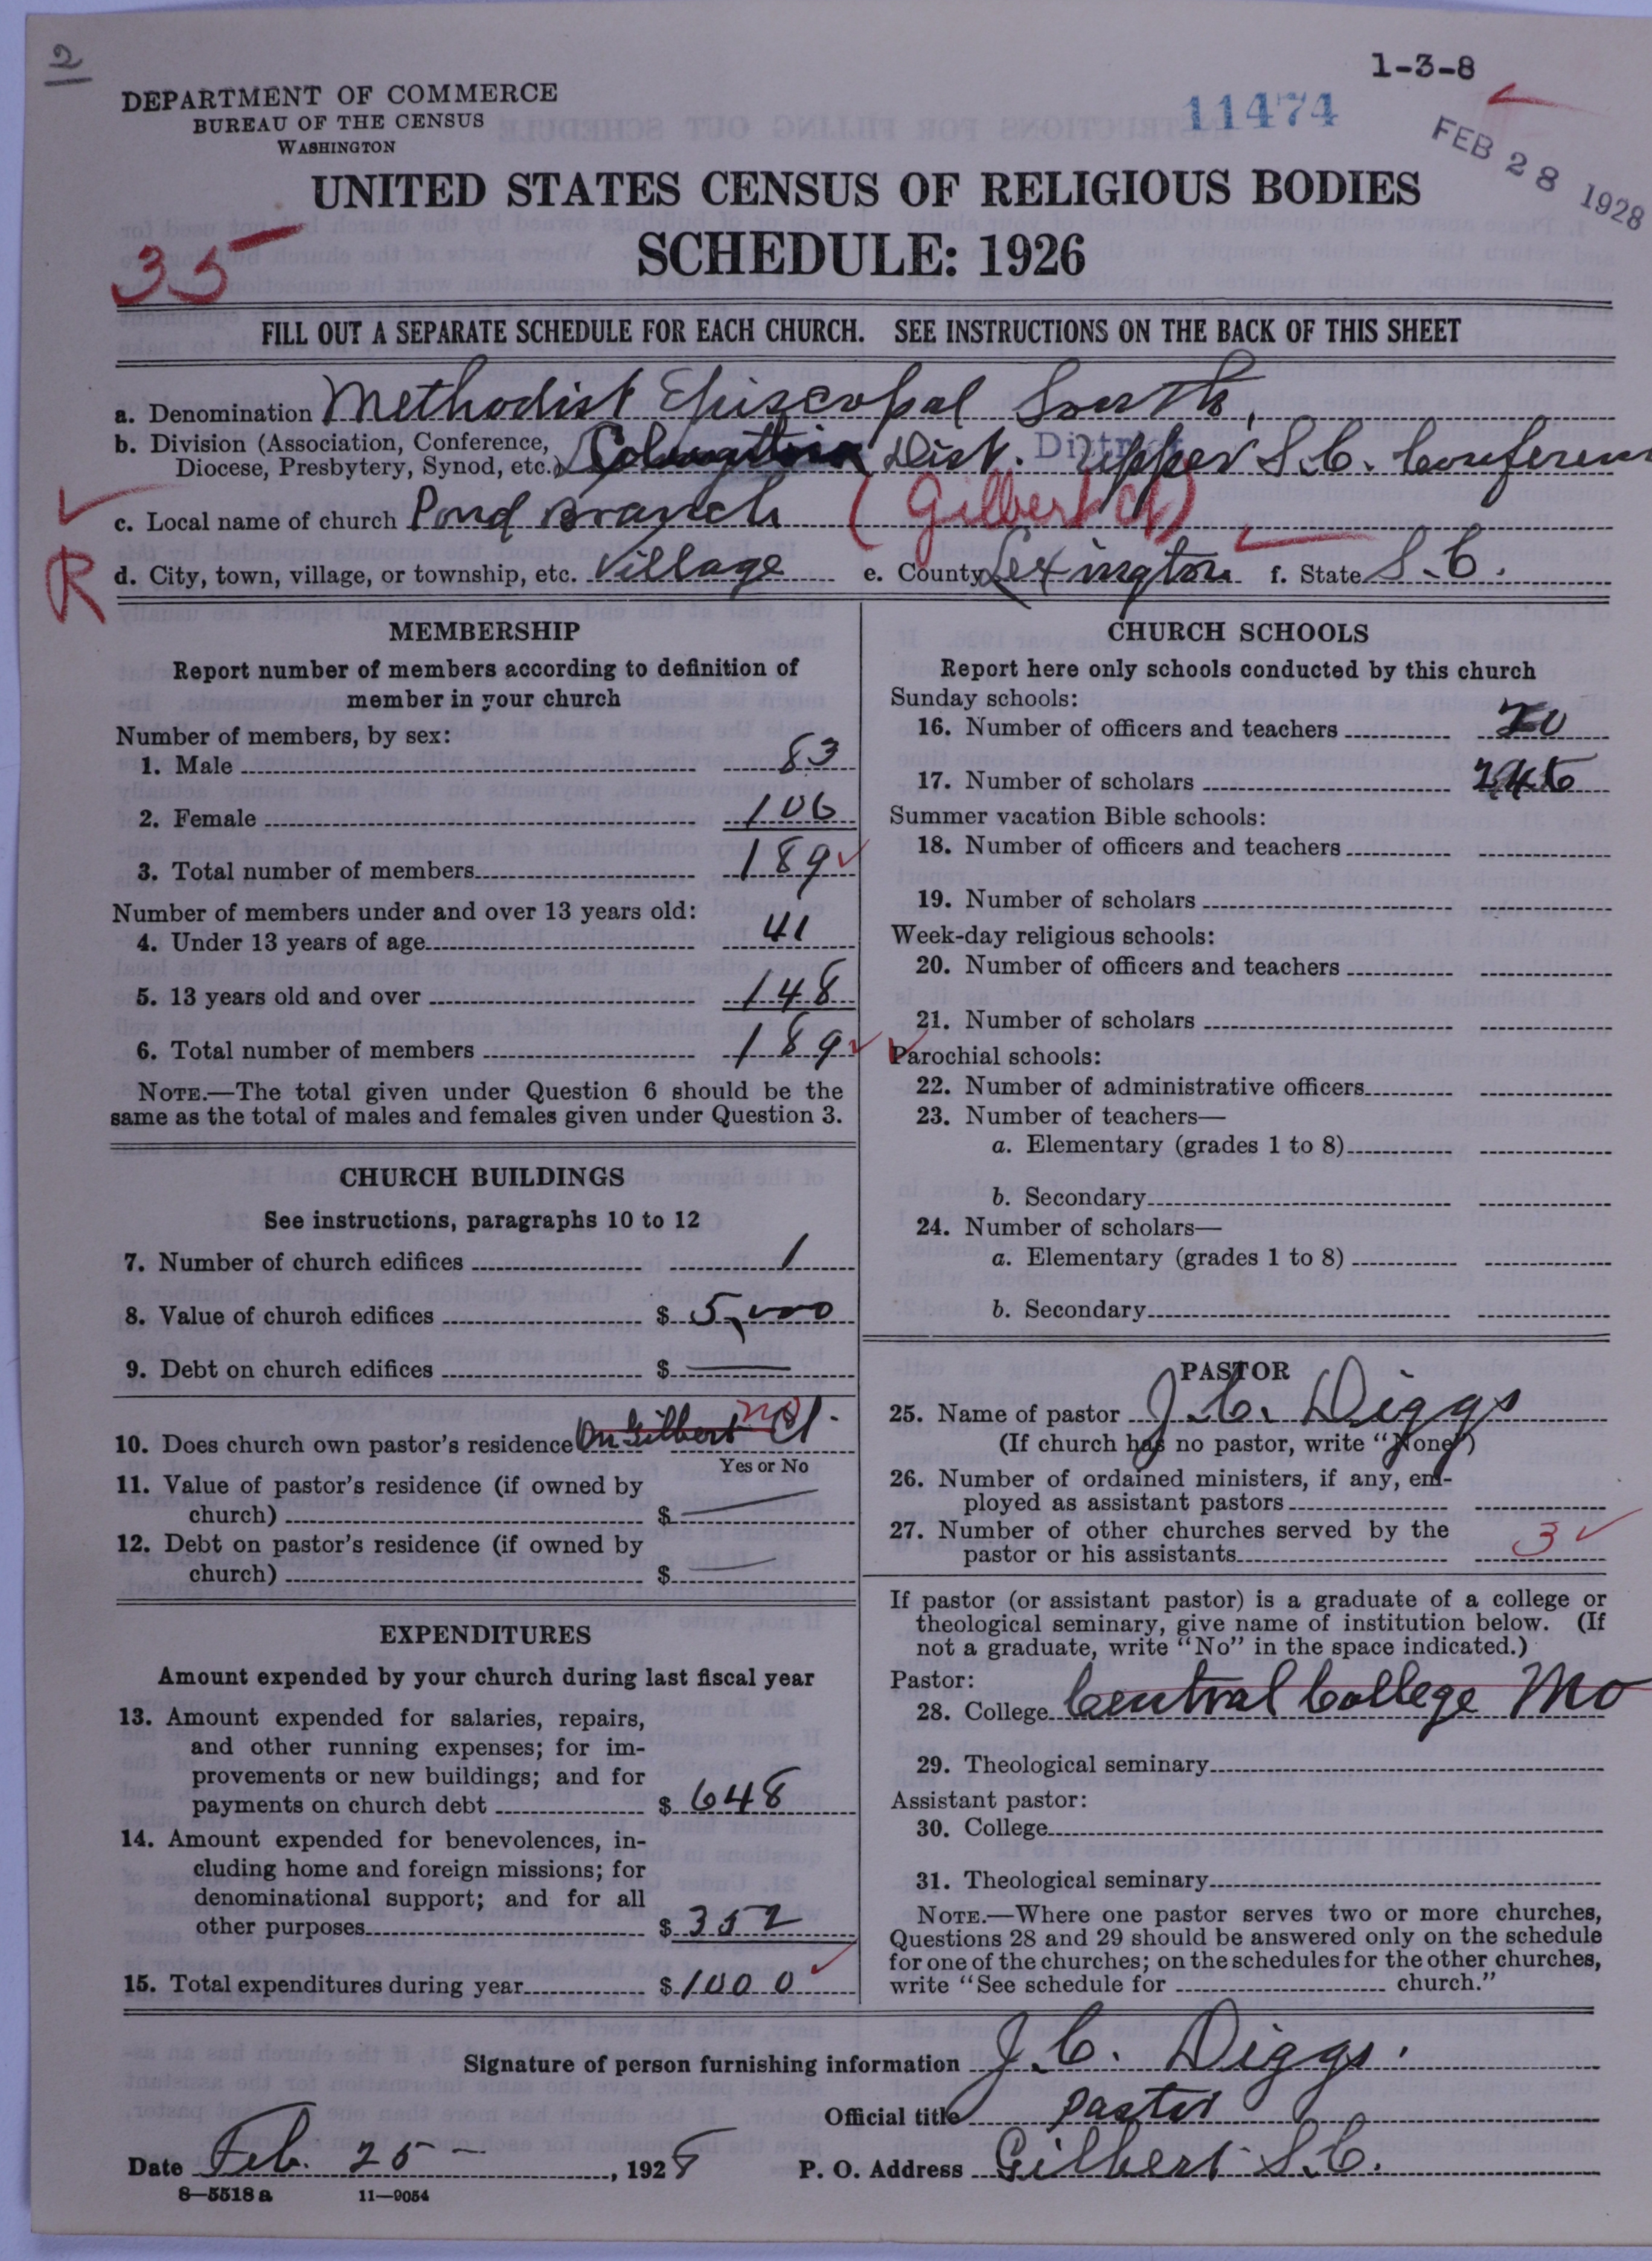 2
1-3-8
DEPARTMENT OF COMMERCE
BUREAU OF THE CENSUS
WASHINGTON
11474
FEB 28 1928
UNITED STATES CENSUS OF RELIGIOUS BODIES
SCHEDULE: 1926
35
FILL OUT A SEPARATE SCHEDULE FOR EACH CHURCH. SEE INSTRUCTIONS ON THE BACK OF THIS SHEET
a. Denomination Methodist Episcopal South,
b. Division (Association, Conference, Diocese, Presbytery, Synod, etc.) Columbia Dist. District Upper S.C. Conferenc
c. Local name of church Pond Branch (Gilbert Ch)
R
d. City, town, village, or township, etc. Village e. County Lexington f. State S.C.
MEMBERSHIP
Report number of members according to definition of
member in your church
Number of members, by sex:
1. Male 83
2. Female 106
3. Total number of members 189
Number of members under and over 13 years old:
4. Under 13 years of age 41
5. 13 years old and over 148
6. Total number of members 189
NOTE.—The total given under Question 6 should be the
same as the total of males and females given under Question 3.
CHURCH BUILDINGS
See instructions, paragraphs 10 to 12
7. Number of church edifices 1
8. Value of church edifices $ 5,000
9. Debt on church edifices $ —
10. Does church own pastor's residence On Gilbert Ct. no
Yes or No
11. Value of pastor's residence (if owned by
church) $ —
12. Debt on pastor's residence (if owned by
church) $ —
EXPENDITURES
Amount expended by your church during last fiscal year
13. Amount expended for salaries, repairs,
and other running expenses; for im-
provements or new buildings; and for
payments on church debt $ 648
14. Amount expended for benevolences, in-
cluding home and foreign missions; for
denominational support; and for all
other purposes $ 352
15. Total expenditures during year $ 1000
CHURCH SCHOOLS
Report here only schools conducted by this church
Sunday schools:
16. Number of officers and teachers 20
17. Number of scholars
Summer vacation Bible schools:
18. Number of officers and teachers
19. Number of scholars
Week-day religious schools:
20. Number of officers and teachers
21. Number of scholars
Parochial schools:
22. Number of administrative officers
23. Number of teachers—
a. Elementary (grades 1 to 8)
b. Secondary
24. Number of scholars—
a. Elementary (grades 1 to 8)
b. Secondary
PASTOR
25. Name of pastor J.C. Diggs
(If church has no pastor, write "None")
26. Number of ordained ministers, if any, em-
ployed as assistant pastors
27. Number of other churches served by the
pastor or his assistants 3
If pastor (or assistant pastor) is a graduate of a college or
theological seminary, give name of institution below. (If
not a graduate, write "No" in the space indicated.)
Pastor:
28. College Central College Mo
29. Theological seminary
Assistant pastor:
30. College
31. Theological seminary
NOTE.—Where one pastor serves two or more churches,
Questions 28 and 29 should be answered only on the schedule
for one of the churches; on the schedules for the other churches,
write "See schedule for church."
Signature of person furnishing information J.C. Diggs.
Official title Pastor
Date Feb. 25 —, 1928 P. O. Address Gilbert S.C.
8—5518 a 11—9054